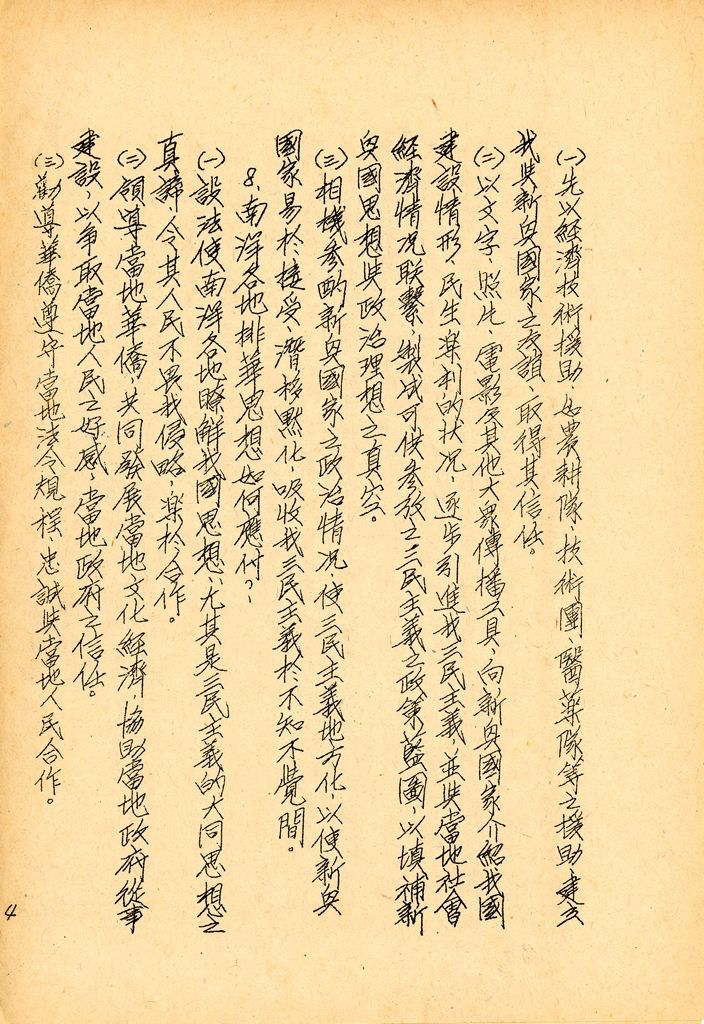 (一)先以經濟技術援助,如農耕隊、技術團、醫藥隊等之援助,建立
我與新興國家之友誼,取得其信任。
(二)以文字、照片、電影及其他大衆傳播工具,向新興國家介紹我國
建設情形,民生樂利的狀况,逐步引進我三民主義,並與當地社會
經濟情况聯繫,製成可供參放之三民主義之政策藍圖,以填補新
興國思想與政治理想之真空。
(三)相機參酌新興國家之政治情况,使三民主義地方化,以使新興
國家易於接受,潛移默化,吸收我三民主義於不知不覺間。
8、南洋各地排華思想如何應付?
(一)設法使南洋各地瞭解我國思想,尤其是三民主義的大同思想之
真諦,令其人民不畏我侵略,樂於合作。
(二)領導當地華僑,共同發展當地文化經濟,協助當地政府從事
建設,以争取當地人民之好感,當地政府之信任。
(三)勸導華僑遵守當地法令規程,忠誠與當地人民合作。
4